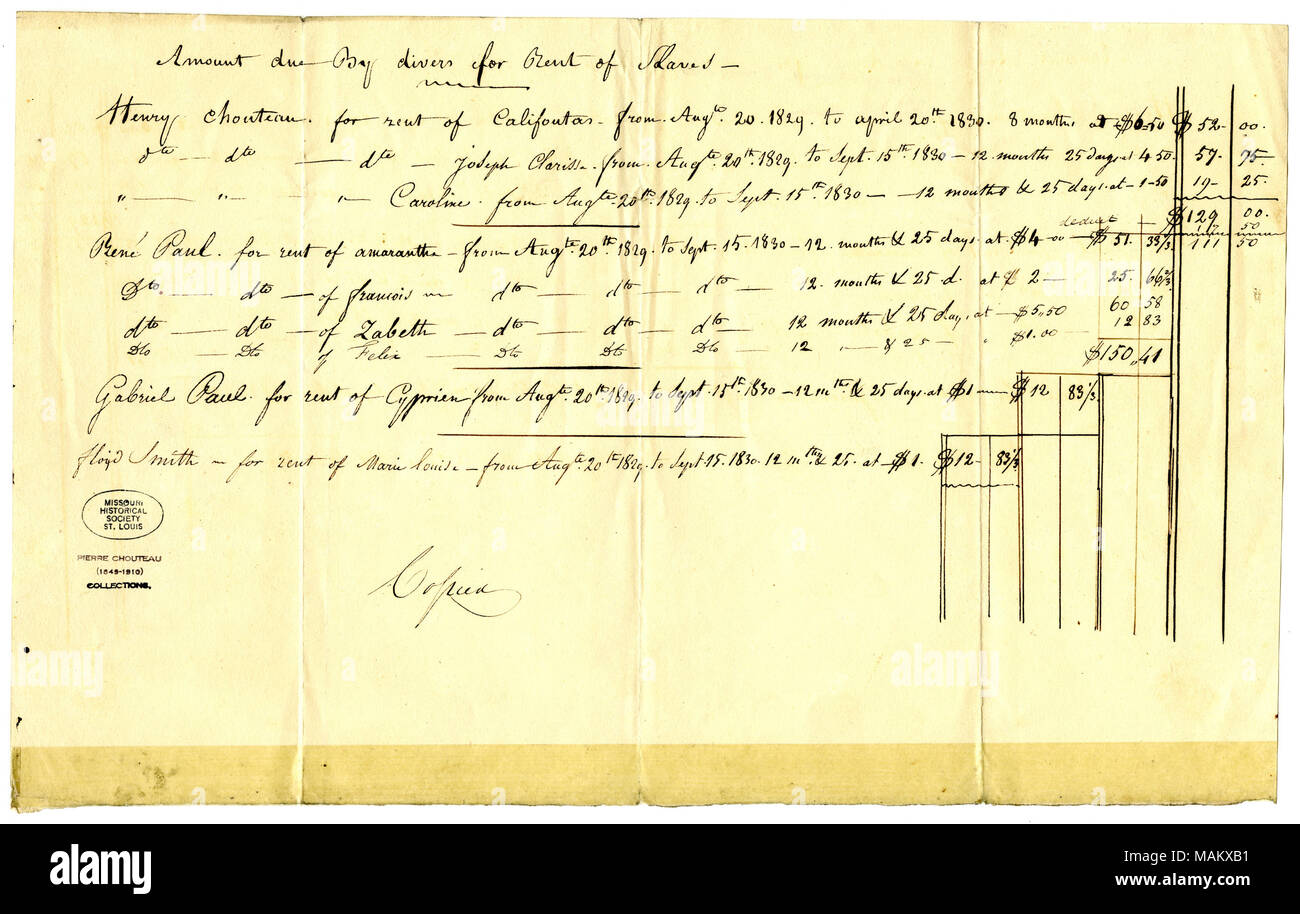 Amount due By divers for Rent of Slaves —
Henry Chouteau. for rent of Califoutas - from Augte. 20. 1829. to april 20th 1830. 8 months at $6-50 $ 52- 00.
dto — dto — dto — Joseph Clarisse. from. Augte. 20th. 1829. to Sept. 15th. 1830 — 12. months 25 days at 4 50. 57. 75.
" — " - " - Caroline. from Augte. 20th. 1829. to Sept. 15th 1830 — — 12 months & 25 days. at - 1-50 19- 25.
$129 00.
deduct — 17 50
111 50
René Paul. for rent of amaranthe - from Augte. 20th. 1829. to Sept. 15. 1830 - 12. months & 25 days at $4 00 — $ 51. 33 1/3
Dto. — dto — of francois — dto — dto — dto — 12. months & 25 d. at $ 2 — 25. 66 2/3.
dto — dto — of Zabeth — dto — dto — dto — 12 months & 25 days. at — $5,50 60 58
Dto — Dto of Felix — Dto Dto Dto — 12 " — & 25 — " $1.00 — 12 83
$150,41
Gabriel Paul. for rent of Cyprien from Augte. 20th. 1829. to Sept. 15th 1830 — 12 mths. & 25 days. at $1 — $ 12 83 1/3
floyd Smith — for rent of Marie Louise — from Augte. 20th 1829. to Sept. 15. 1830. 12 mths & 25. at $1. $12- 83 1/3
MISSOURI
HISTORICAL
SOCIETY
ST. LOUIS
PIERRE CHOUTEAU
(1849-1910)
COLLECTIONS.
Copied
alamy
a
alamy
Image ID: MAKXB1
www.alamy.com